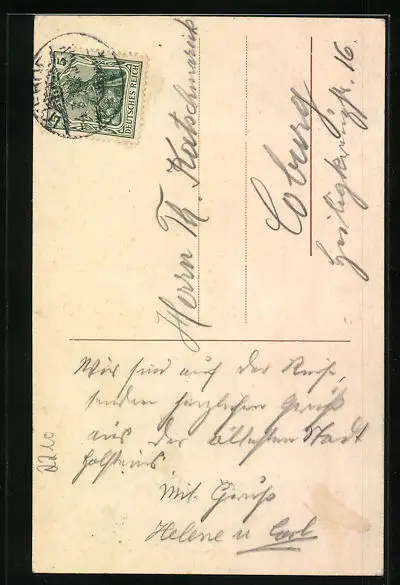 DEUTSCHES REICH
5
Herrn Th. Katschmarik
Coburg
Heiligkreuzstr. 16.
Wir sind auf der Reise,
senden herzlichen Gruß
aus der ältesten Stadt
Holsteins.
Mit Gruß
Helene u Carl